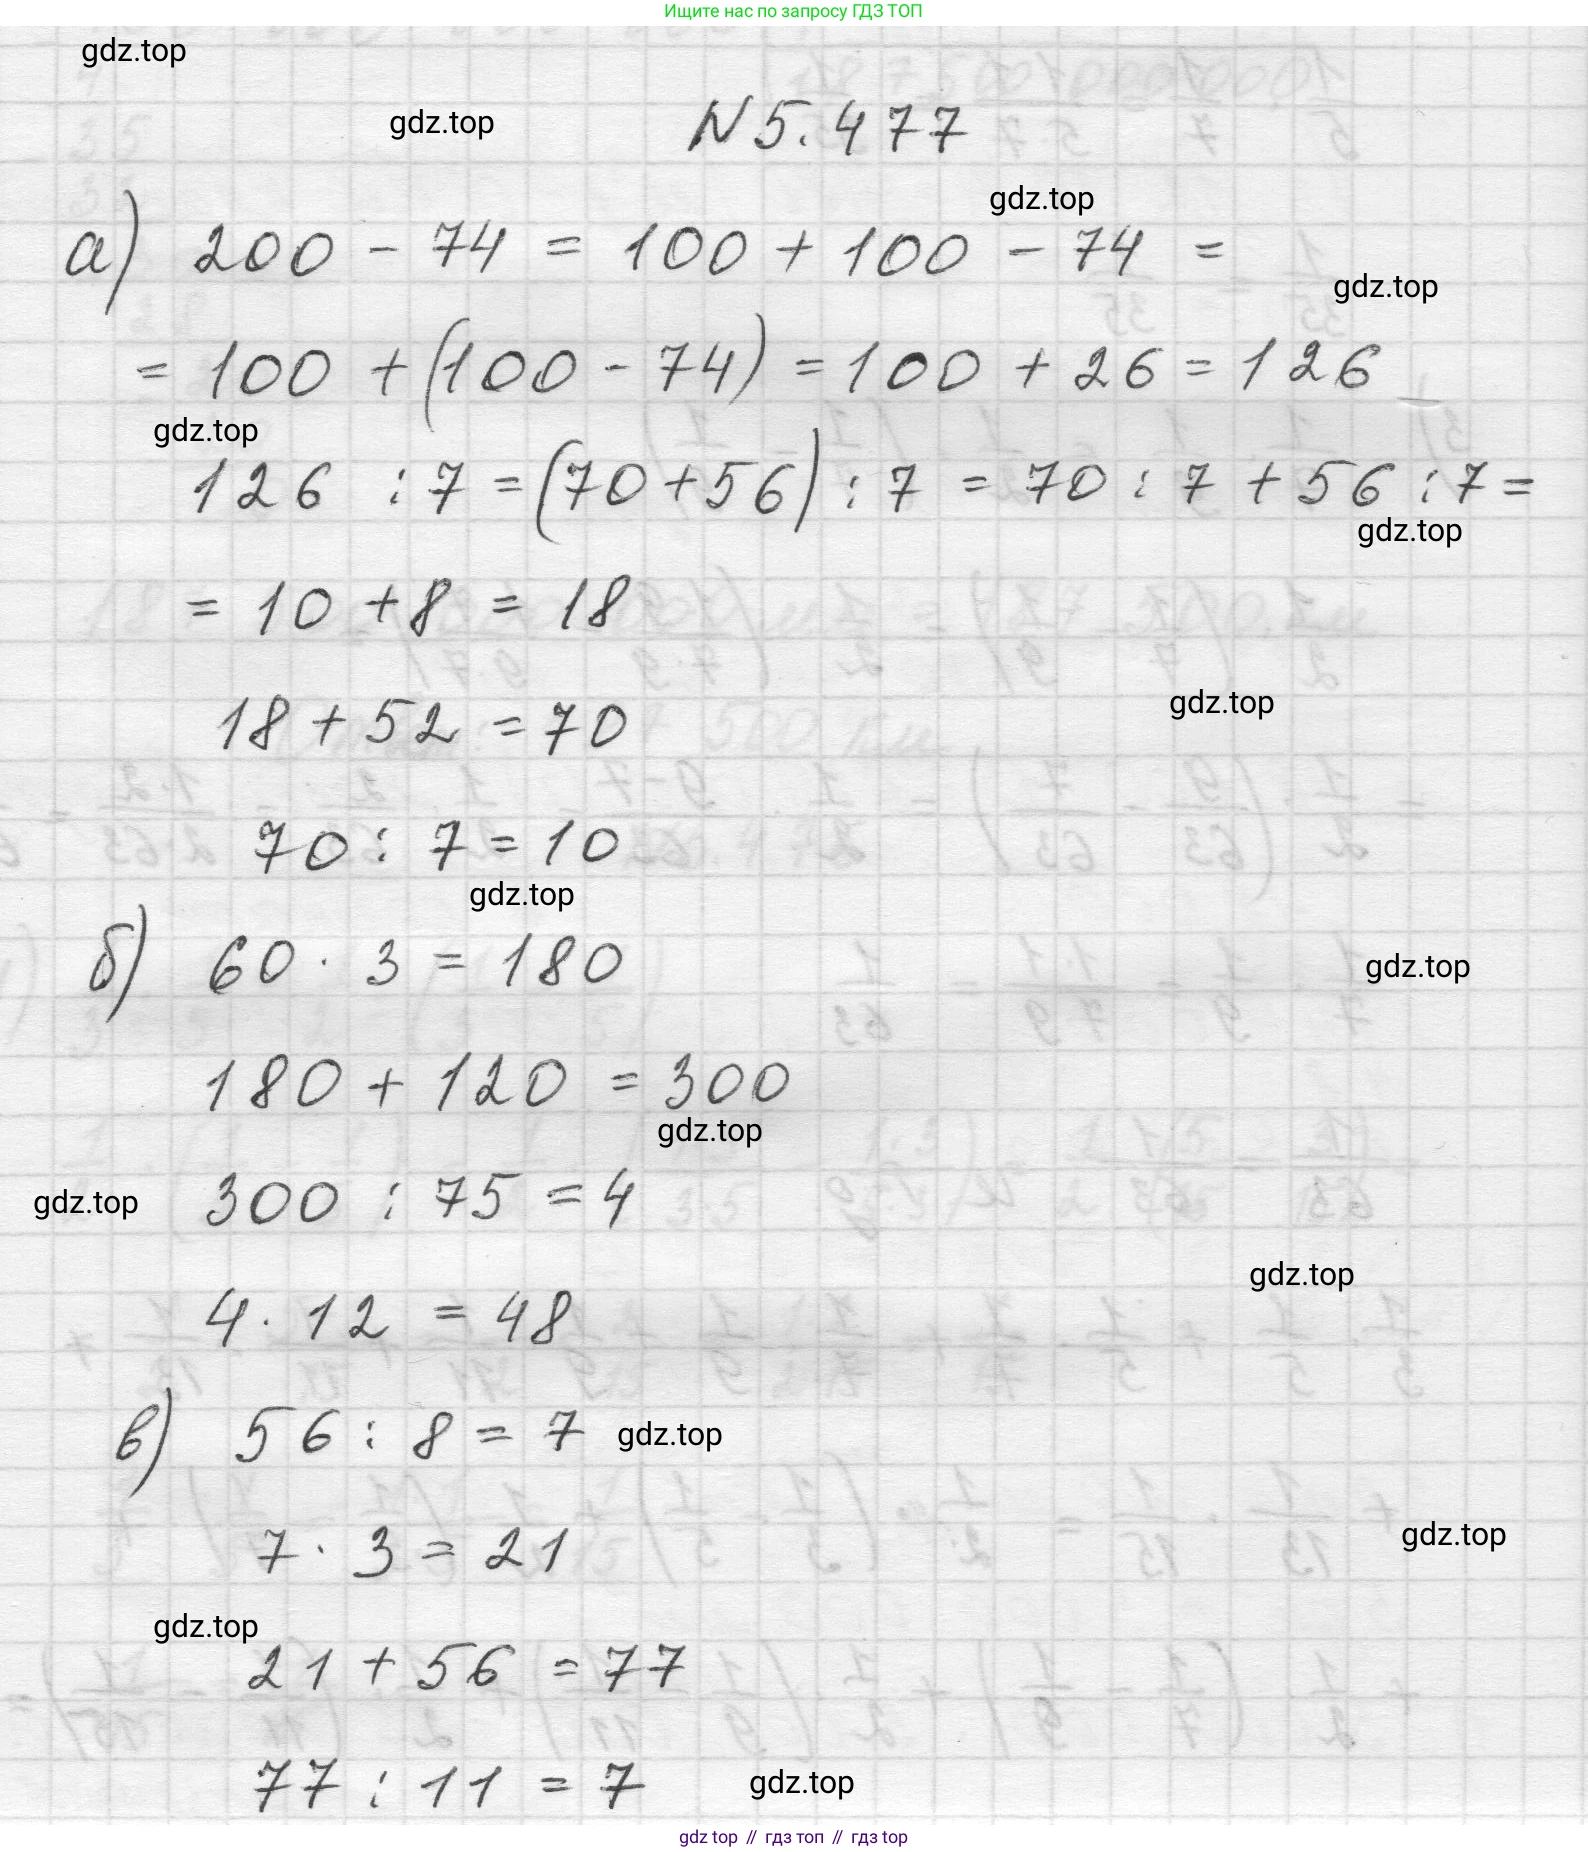 Ищите нас по запросу ГДЗ ТОП
gdz.top
gdz.top
N 5.477
gdz.top
а) 200 - 74 = 100 + 100 - 74 =
gdz.top
= 100 + (100 - 74) = 100 + 26 = 126
gdz.top
126 : 7 = (70 + 56) : 7 = 70 : 7 + 56 : 7 =
gdz.top
= 10 + 8 = 18
18 + 52 = 70
gdz.top
70 : 7 = 10
gdz.top
б) 60 · 3 = 180
gdz.top
180 + 120 = 300
gdz.top
300 : 75 = 4
gdz.top
gdz.top
4 · 12 = 48
в) 56 : 8 = 7
gdz.top
7 · 3 = 21
gdz.top
gdz.top
21 + 56 = 77
77 : 11 = 7
gdz.top
gdz top // гдз топ // гдз top